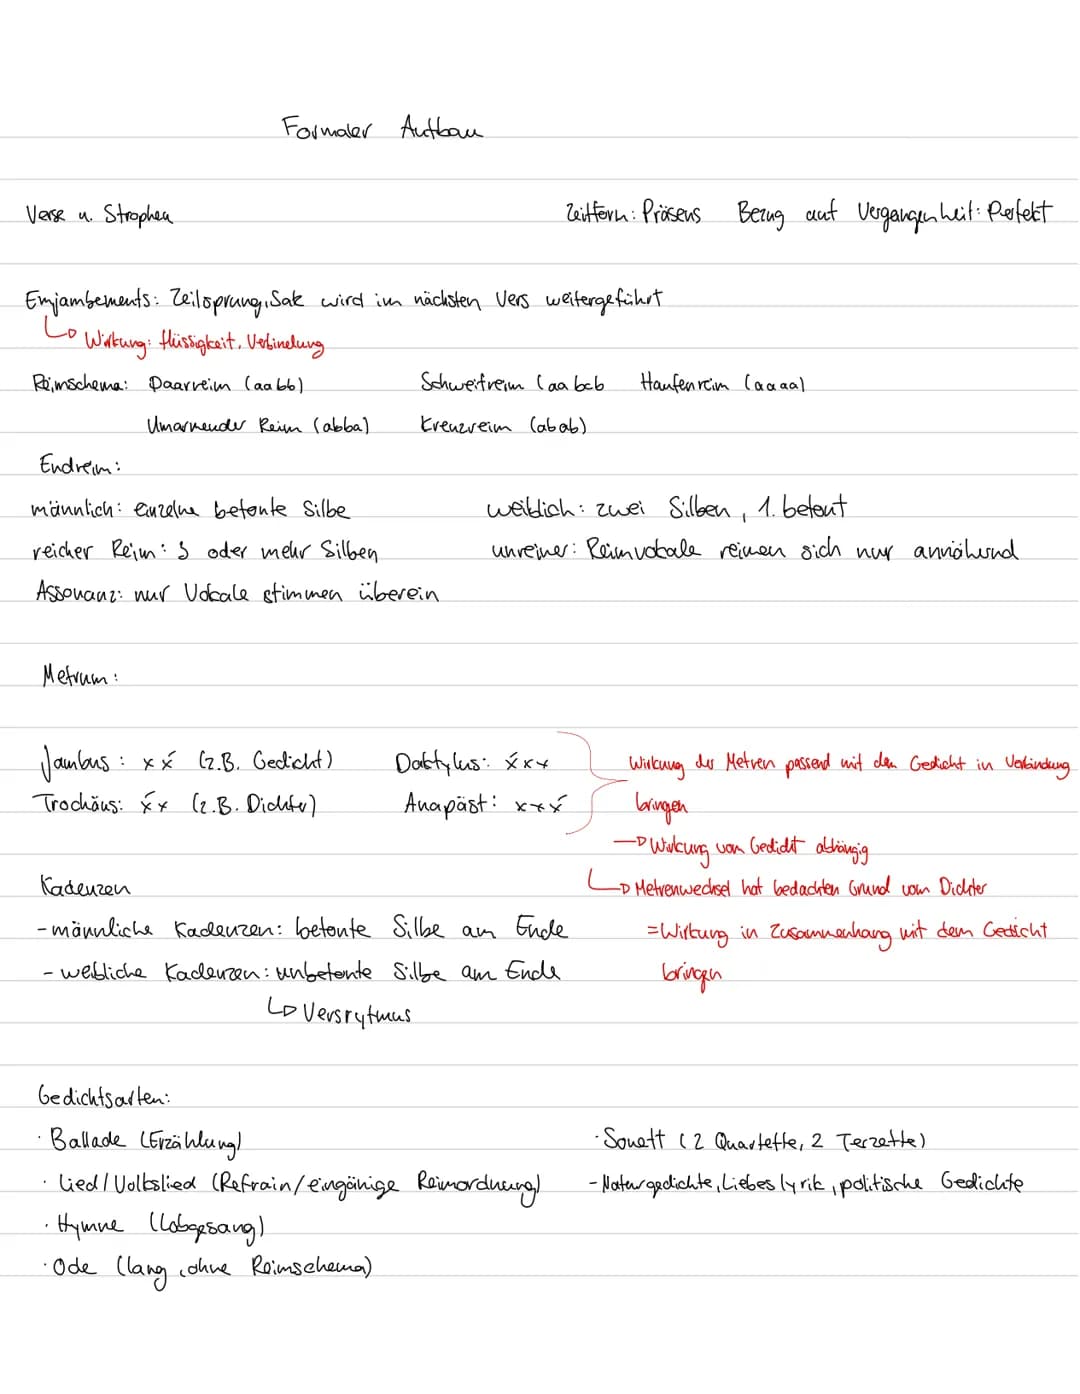 Formaler Aufbau
Verse u. Strophen Zeitform: Präsens Bezug auf Vergangenheit: Perfekt
Enjambements: Zeilsprung, Satz wird im nächsten Vers weitergeführt
↳ Wirkung: flüssigkeit, Verbindung
Reimschema: Paarreim (aabb) Schweifreim (aabcb Haufenreim (aaaa)
Umarmender Reim (abba) Kreuzreim (abab)
Endreim:
männlich: einzelne betonte Silbe weiblich: zwei Silben, 1. betont
reicher Reim: 3 oder mehr Silben unreiner: Reimvokale reimen sich nur annähernd
Assonanz: nur Vokale stimmen überein
Metrum:
Jambus: xx́ (z.B. Gedicht) Daktylus: x́xx Wirkung des Metren passend mit dem Gedicht in Verbindung
Trochäus: x́x (z.B. Dichter) Anapäst: xxx́ bringen
→ Wirkung vom Gedicht abhängig
Kadenzen ↳ Metrenwechsel hat bedachten Grund vom Dichter
- männliche Kadenzen: betonte Silbe am Ende = Wirkung in Zusammenhang mit dem Gedicht
- weibliche Kadenzen: unbetonte Silbe am Ende bringen
↳ Versrytmus
Gedichtsarten:
· Ballade (Erzählung) · Sonett (2 Quartette, 2 Terzette)
· Lied/Volkslied (Refrain/eingänige Reimordnung) - Naturgedichte, Liebeslyrik, politische Gedichte
· Hymne (Lobgesang)
· Ode (lang, ohne Reimschema)